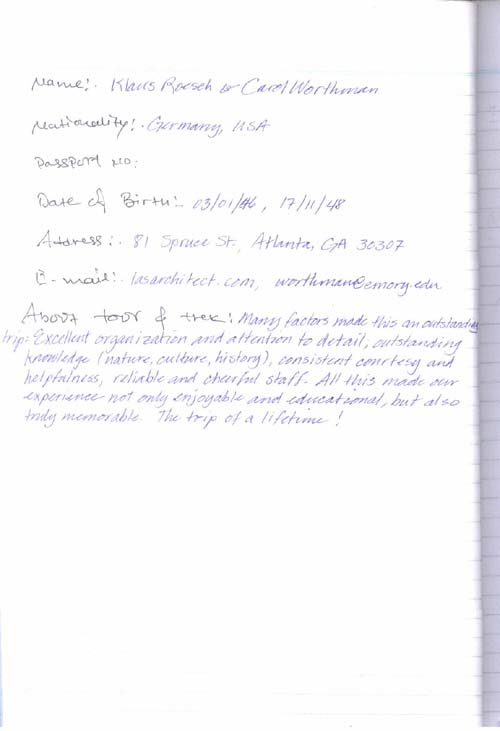 Name:. Klaus Roesch & Carol Worthman
Nationality:. Germany, USA
Passport No:
Date of Birth:. 03/01/46, 17/11/48
Address:. 81 Spruce St., Atlanta, GA 30307
E-mail:. lasarchitect.com, worthman@emory.edu
About tour & trek: Many factors made this an outstanding
trip: Excellent organization and attention to detail, outstanding
knowledge (nature, culture, history), consistent courtesy and
helpfulness, reliable and cheerful staff. All this made our
experience not only enjoyable and educational, but also
truly memorable. The trip of a lifetime!